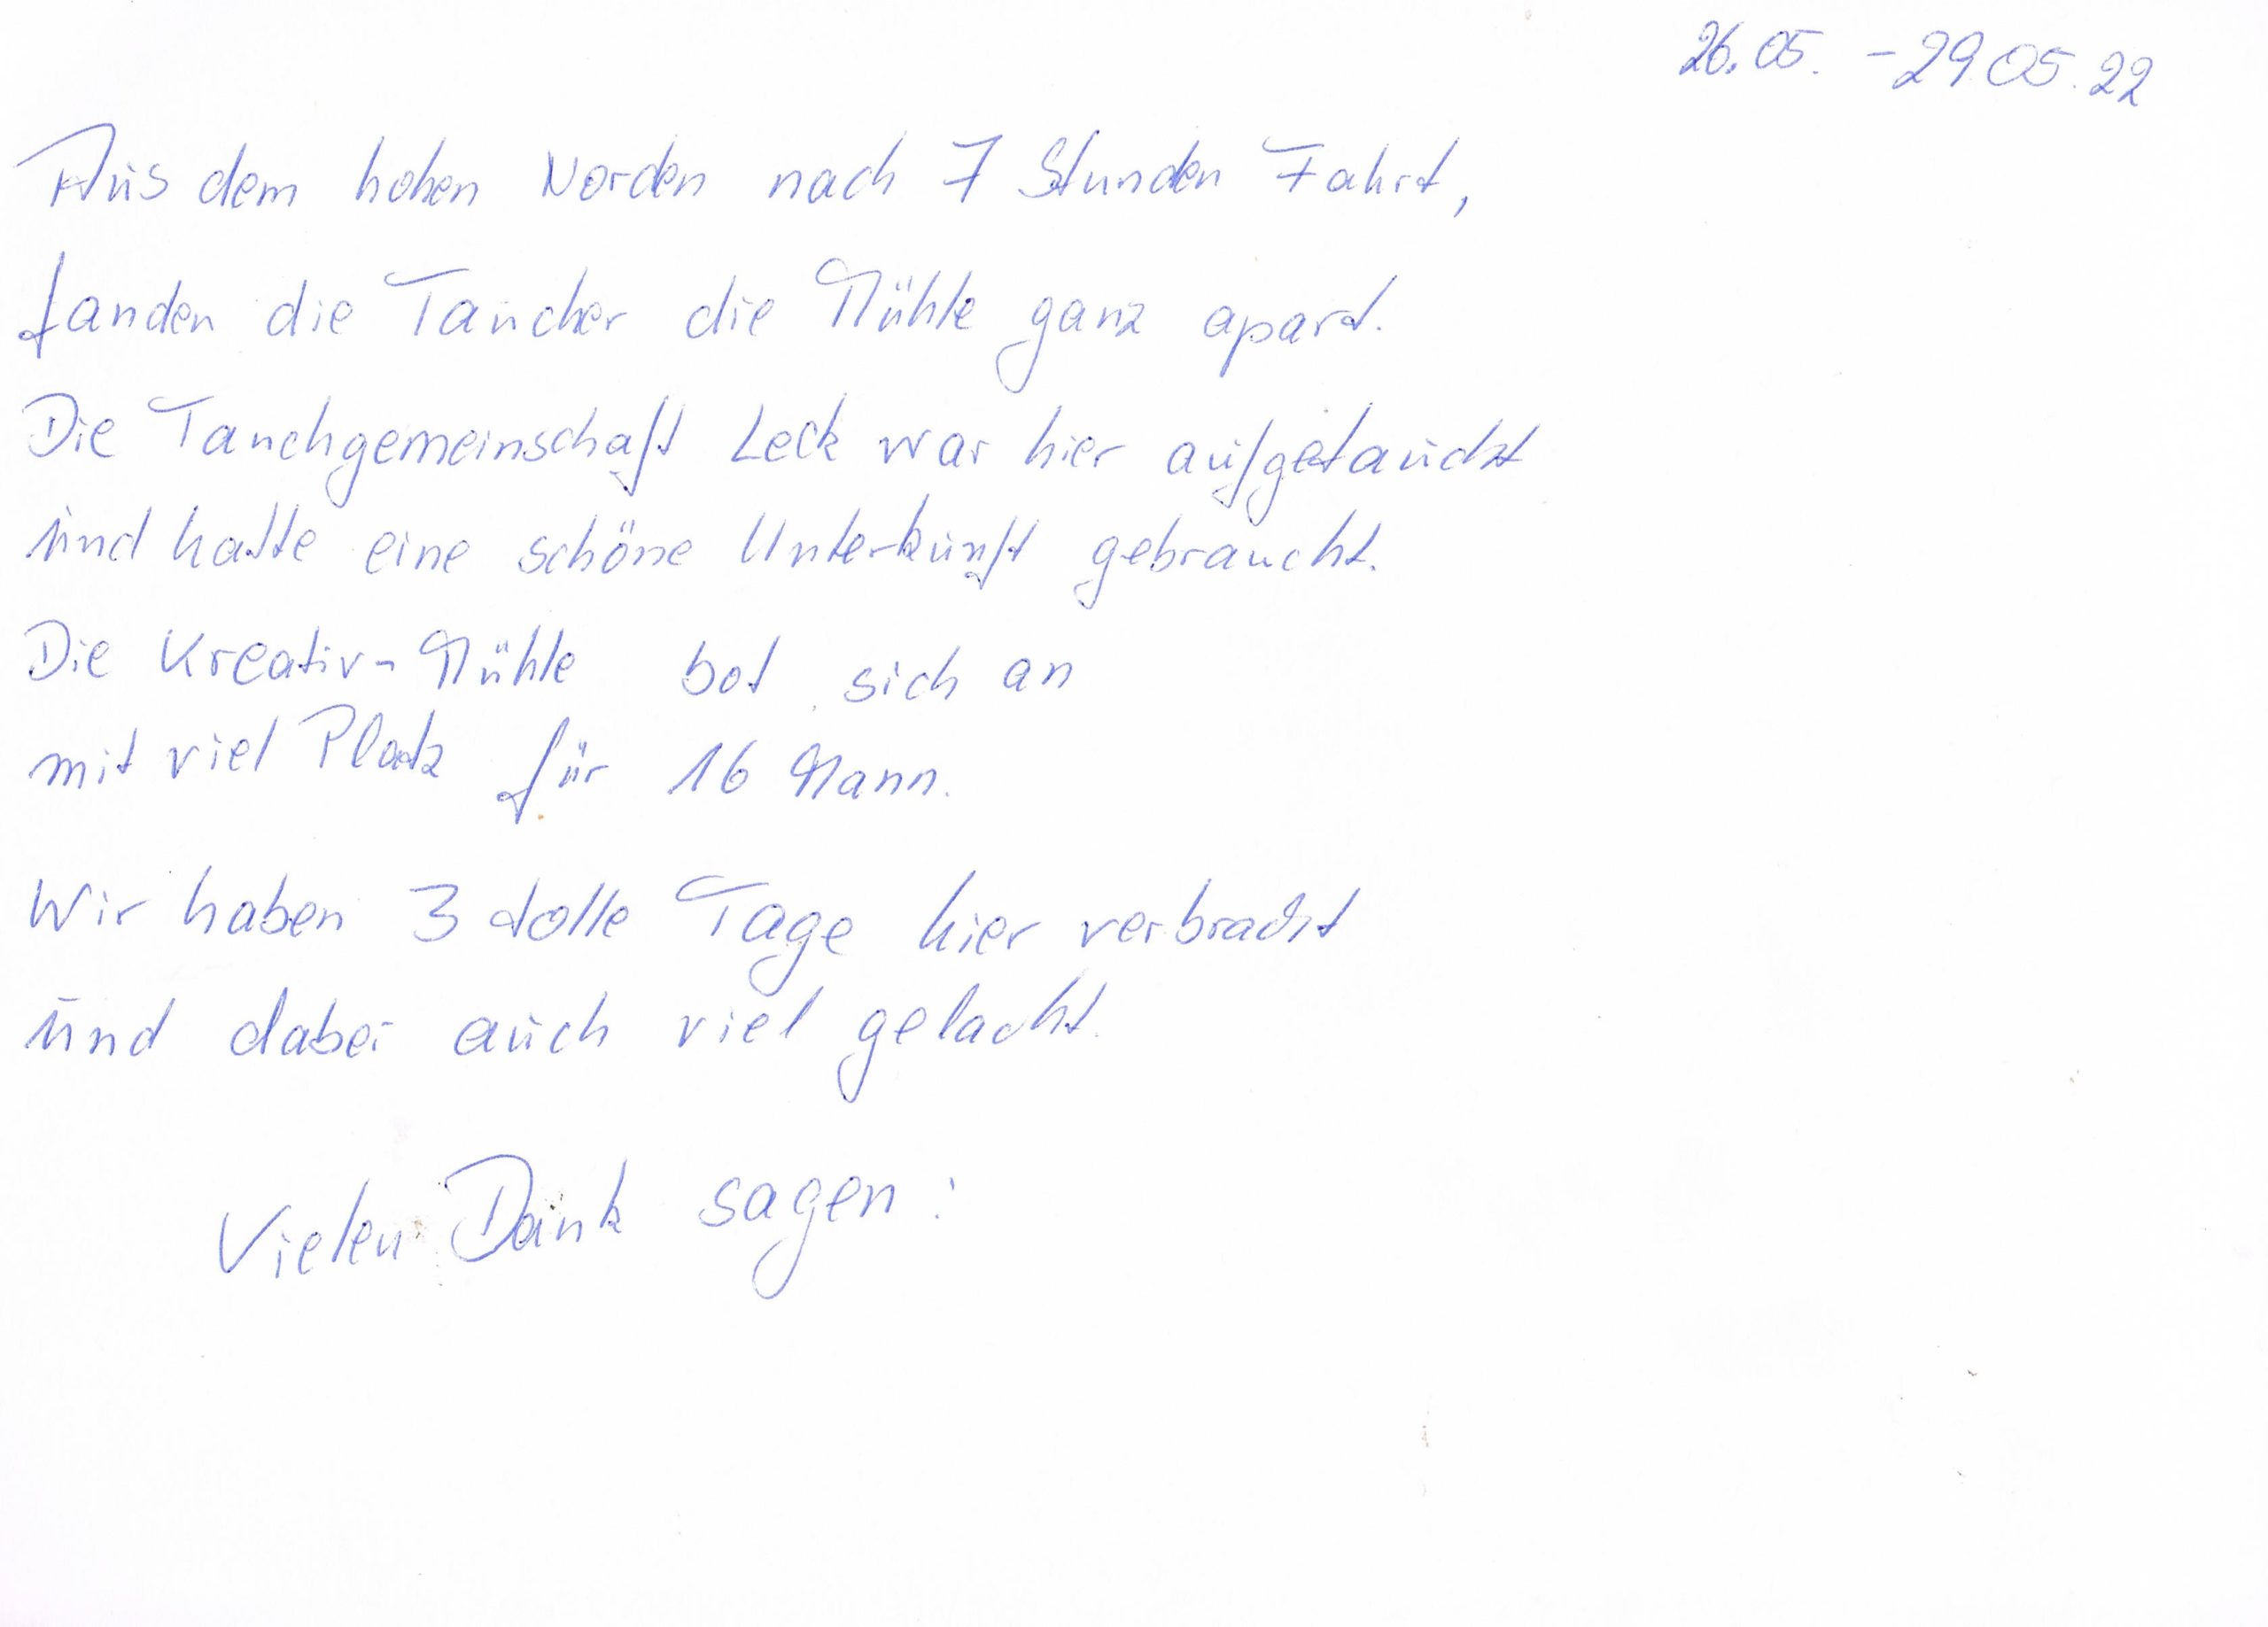 26.05. - 29.05.22
Aus dem hohen Norden nach 7 Stunden Fahrt,
fanden die Taucher die Mühle ganz apart.
Die Tauchgemeinschaft Leck war hier aufgetaucht
und hatte eine schöne Unterkunft gebraucht.
Die Kreativ-Mühle bot sich an
mit viel Platz für 16 Mann.
Wir haben 3 tolle Tage hier verbracht
und dabei auch viel gelacht.
Vielen Dank sagen: